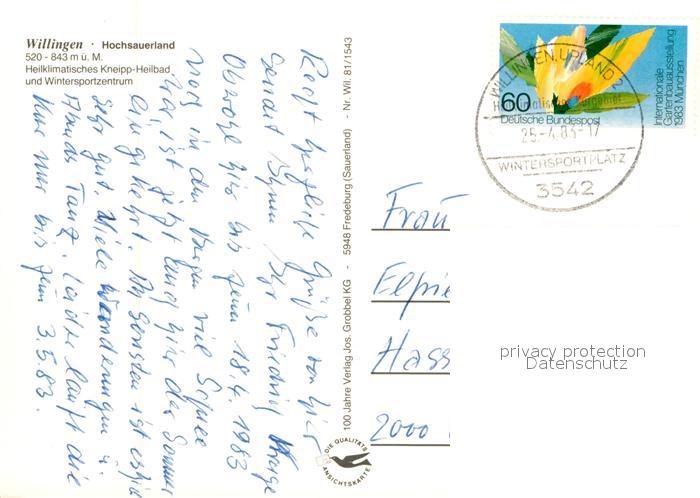 Willingen · Hochsauerland
520 - 843 m ü. M.
Heilklimatisches Kneipp-Heilbad
und Wintersportzentrum
Recht herzliche Grüße von hier
sendet Ihnen Ihr Friedrich
Obwohl hier bis zum 18.4. 1983
noch in den Bergen viel Schnee
ist jetzt lang hier der Sommer
eingekehrt. Ansonsten ist es hier
sehr gut. Viele Wanderungen u.
Abends Tanz. Leider läuft die
Kur nur bis zum 3.5.83.
100 Jahre Verlag Jos. Grobbel KG - 5948 Fredeburg (Sauerland) - Nr. Wil. 81/1543
DIE QUALITÄTS
ANSICHTSKARTE
60
Deutsche Bundespost
Internationale
Gartenbauausstellung
1983 München
WILLINGEN, UPLAND 2
25.-4.83-17
WINTERSPORTPLATZ
3542
Frau
Elpi
Hass
2000
privacy protection
Datenschutz